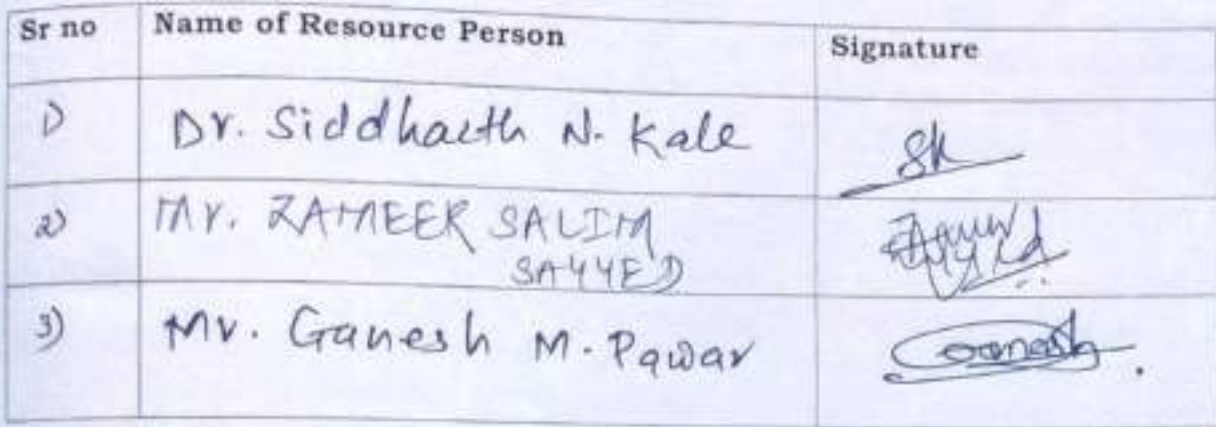 Sr no Name of Resource Person Signature
1) Dr. Siddharth N. Kale SK
2) Mr. ZAMEER SALIM
SAYYED
3) Mr. Ganesh M. Pawar Ganesh